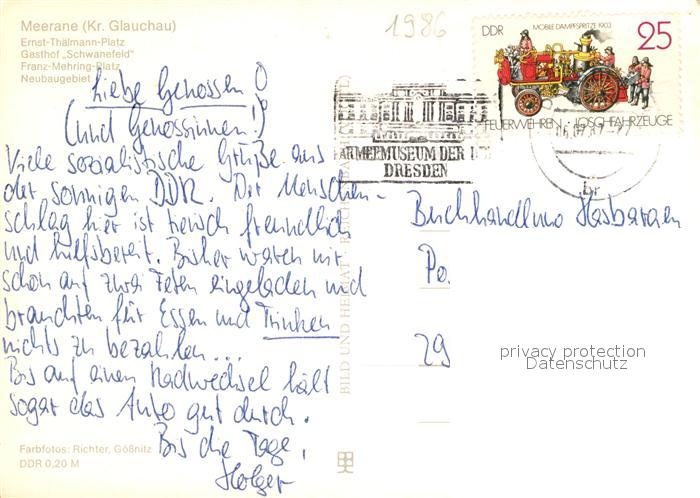 Meerane (Kr. Glauchau)
Ernst-Thälmann-Platz
Gasthof „Schwanefeld"
Franz-Mehring-Platz
Neubaugebiet
1986
DDR
MOBILE DAMPFSPRITZE 1903
25
FEUERWEHREN · LÖSCHFAHRZEUGE
ARMEEMUSEUM DER
DRESDEN
Liebe Genossen!
(und Genossinnen!)
Viele sozialistische Grüße aus
der sonnigen DDR. Der Menschen-
schlag hier ist tierisch freundlich
und hilfsbereit. Bisher waren wir
schon auf zwei Feten eingeladen und
brauchten für Essen und Trinken
nichts zu bezahlen...
Bis auf einen Radwechsel hält
sogar das Auto gut durch.
Bis die Tage,
Holger
Buchhandlung
Po.
29
privacy protection
Datenschutz
BILD UND HEIMAT
Farbfotos: Richter, Gößnitz
DDR 0,20 M